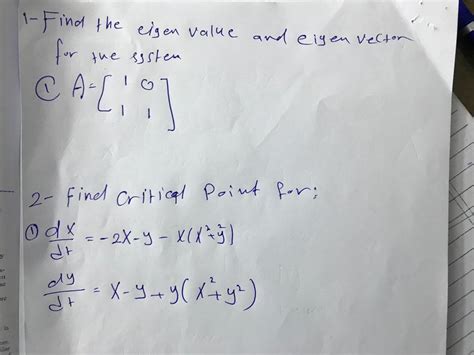 1- Find the eigen value and eigen vector
for the system
① A = [ 1 0
1 1 ]
2- Find critical Point for;
① dx/dt = -2x-y - x(x²+y²)
dy/dt = x-y+y(x²+y²)